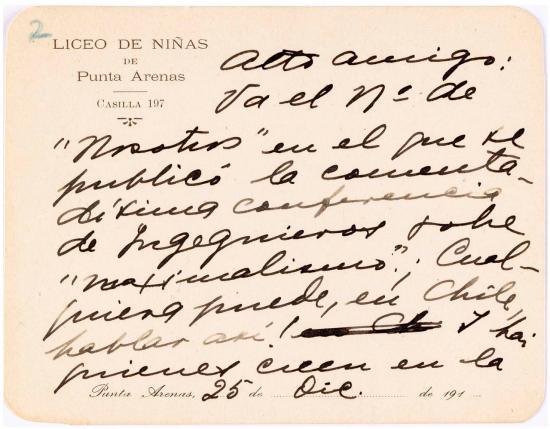 2
LICEO DE NIÑAS
DE
Punta Arenas
CASILLA 197
Alto amigo:
Va el Nº de
"Nosotros" en el que se
publicó la comenta-
dísima conferencia
de Ingegnieros sobre
"maximalismo". ¡Cual-
quiera puede, en Chile,
hablar así! Y hai
quienes creen en la
Punta Arenas, 25 de Dic. de 191